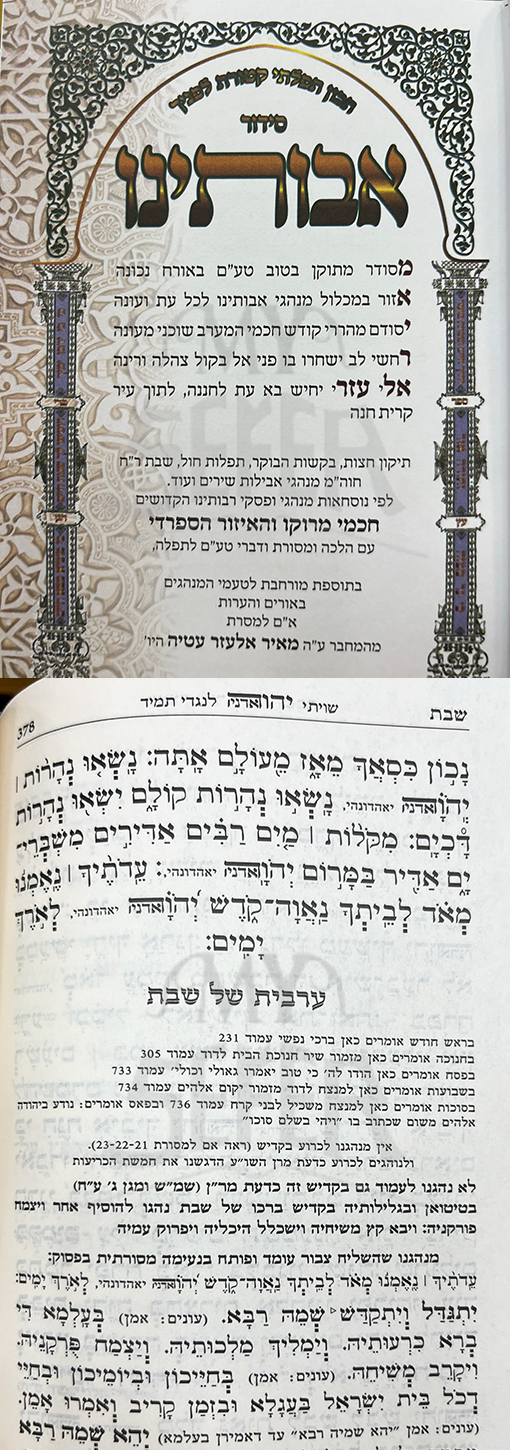 תכון תפלתי קטורת לפניך
סידור
אבותינו
מסודר מתוקן בטוב טע"ם באורח נכונה
אזור במכלול מנהגי אבותינו לכל עת ועונה
יסודם מהררי קודש חכמי המערב שוכני מעונה
רחשי לב ישחרו בו פני אל בקול צהלה ורינה
אלי עזרי יחיש בא עת לחננה, לתוך עיר
קרית חנה
תיקון חצות, בקשות הבוקר, תפלות חול, שבת ר"ח
חוה"מ מנהגי אבילות שירים ועוד.
לפי נוסחאות מנהגי ופסקי רבותינו הקדושים
חכמי מרוקו והאיזור הספרדי
עם הלכה ומסורת ודברי טע"ם לתפלה,
בתוספת מורחבת לטעמי המנהגים
באורים והערות
א"ם למסרת
מהמחבר ע"ה מאיר אלעזר עטיה היו'
ספר
עץ
שבת שויתי יהוה אדני לנגדי תמיד 378
נָכ֣וֹן כִּסְאֲךָ֣ מֵאָ֑ז מֵֽעוֹלָ֣ם אָֽתָּה: נָשְׂא֤וּ נְהָר֨וֹת |
יְֽהֹוָ֗ה אדני יאהדונהי, נָשְׂא֣וּ נְהָר֣וֹת קוֹלָ֑ם יִשְׂא֖וּ נְהָר֣וֹת
דָּכְיָֽם: מִקֹּל֨וֹת | מַ֤יִם רַבִּ֗ים אַדִּירִ֣ים מִשְׁבְּרֵי־
יָ֑ם אַדִּ֖יר בַּמָּר֣וֹם יְהֹוָֽה אדני יאהדונהי,: עֵֽדֹתֶ֨יךָ | נֶאֶמְנ֬וּ
מְאֹ֗ד לְבֵיתְךָ֥ נַאֲוָה־קֹ֑דֶשׁ יְ֝הֹוָ֗ה אדני יאהדונהי, לְאֹ֣רֶךְ
יָמִֽים:
ערבית של שבת
בראש חודש אומרים כאן ברכי נפשי עמוד 231
בחנוכה אומרים כאן מזמור שיר חנוכת הבית לדוד עמוד 305
בפסח אומרים כאן הודו לה' כי טוב יאמרו גאולי וכולי' עמוד 733
בשבועות אומרים כאן למנצח לדוד מזמור יקום אלהים עמוד 734
בסוכות אומרים כאן למנצח משכיל לבני קרח עמוד 736 ובפאס אומרים: נודע ביהודה
אלהים משום שכתוב בו "ויהי בשלם סוכו"
אין מנהגנו לכרוע בקדיש (ראה אם למסורת 23-22-21).
ולנוהגים לכרוע כדעת מרן השו"ע הדגשנו את חמשת הכריעות
לא נהגנו לעמוד גם בקדיש זה כדעת מר"ן (שמ"ש ומגן ג' ע"ח)
בטיטואן ובגלילותיה בקדיש ברכו של שבת נהגו להוסיף אחר ויצמח
פורקניה: ויבא קץ משיחיה וישכלל היכליה ויפרוק עמיה
מנהגנו שהשליח צבור עומד ופותח בנעימה מסורתית בפסוק:
עֵֽדֹתֶ֨יךָ | נֶאֶמְנ֬וּ מְאֹ֗ד לְבֵיתְךָ֥ נַאֲוָה־קֹ֑דֶשׁ יְ֝הֹוָ֗ה אדני יאהדונהי, לְאֹ֣רֶךְ יָמִֽים:
יִתְגַּדַּל וְיִתְקַדַּשׁ שְׁמֵהּ רַבָּא. (עונים: אמן) בְּעָלְמָא דִּי
בְרָא כִרְעוּתֵיהּ. וְיַמְלִיךְ מַלְכוּתֵיהּ. וְיַצְמַח פֻּרְקָנֵיהּ.
וִיקָרֵב מְשִׁיחֵהּ. (עונים: אמן) בְּחַיֵּיכוֹן וּבְיוֹמֵיכוֹן וּבְחַיֵּי
דְכֹל בֵּית יִשְׂרָאֵל בַּעֲגָלָא וּבִזְמַן קָרִיב וְאִמְרוּ אָמֵן.
(עונים: אמן "יהא שמיה רבא" עד דאמירן בעלמא) יְהֵא שְׁמֵהּ רַבָּא